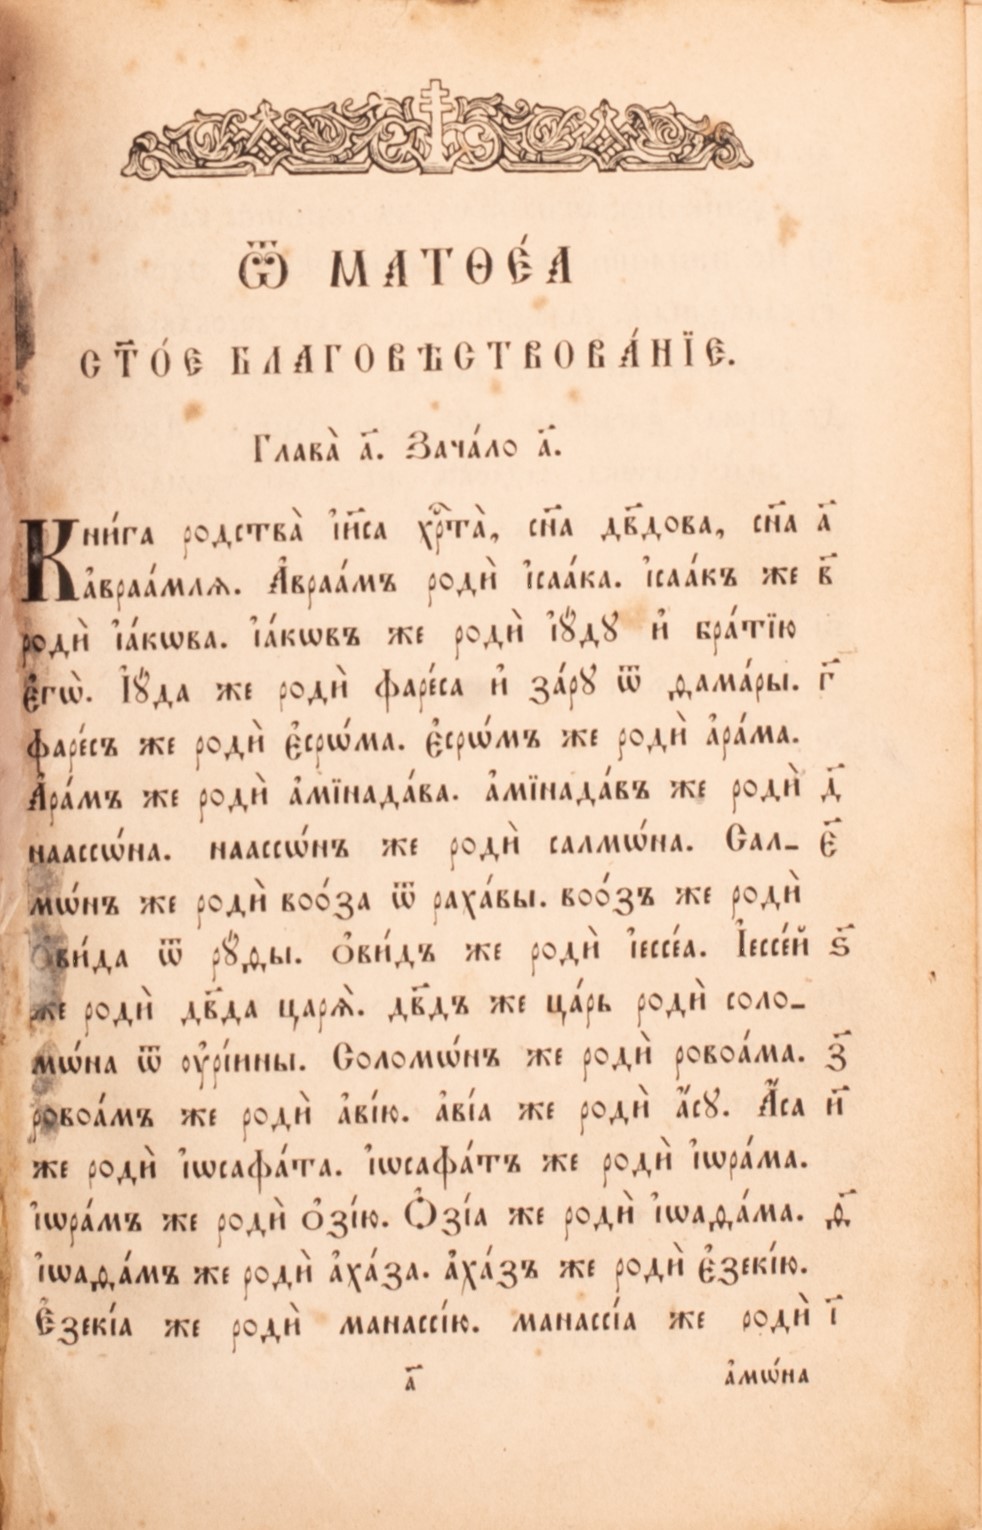 Ѿ МАТѲЕ́А
СТ҃О́Е БЛАГОВѢСТВОВА́НЇЕ.
Глава̀ а҃. Зача́ло а҃.
Кни́га родства̀ і҆и҃са хрⷭ҇та̀, сн҃а дв҃дова, сн҃а а҃
а҆враа́мля. А҆враа́мъ родѝ і҆саа́ка. і҆саа́къ же в҃
родѝ і҆а́кѡва. і҆а́кѡвъ же родѝ і҆ꙋ́дꙋ и҆ бра́тїю
є҆гѡ̀. І҆ꙋ́да же родѝ фаре́са и҆ за́рꙋ ѿ ѳама́ры. г҃
фаре́съ же родѝ є҆срѡ́ма. є҆срѡ́мъ же родѝ а҆ра́ма.
А҆ра́мъ же родѝ а҆мїнада́ва. а҆мїнада́въ же родѝ д҃
наассѡ́на. наассѡ́нъ же родѝ салмѡ́на. Сал_ є҃
мѡ́нъ же родѝ воо́за ѿ раха́вы. воо́зъ же родѝ
ѻ҆ви́да ѿ рꙋ́ѳы. ѻ҆ви́дъ же родѝ і҆ессе́а. І҆ессе́й ѕ҃
же родѝ дв҃да царѧ̀. дв҃дъ же ца́рь родѝ соло_
мѡ́на ѿ ᲂу҆рі́инны. Соломѡ́нъ же родѝ ровоа́ма. з҃
ровоа́мъ же родѝ а҆ві́ю. а҆ві́а же родѝ а҆́сꙋ. А҆́са и҃
же родѝ і҆ѡсафа́та. і҆ѡсафа́тъ же родѝ і҆ѡра́ма.
і҆ѡра́мъ же родѝ ѻ҆зі́ю. Ѻ҆зі́а же родѝ і҆ѡаѳа́ма. ѳ҃
і҆ѡаѳа́мъ же родѝ а҆ха́за. а҆ха́зъ же родѝ є҆зекі́ю.
Є҆зекі́а же родѝ манассі́ю. манассі́а же родѝ і҃
а҃ а҆мѡ́на